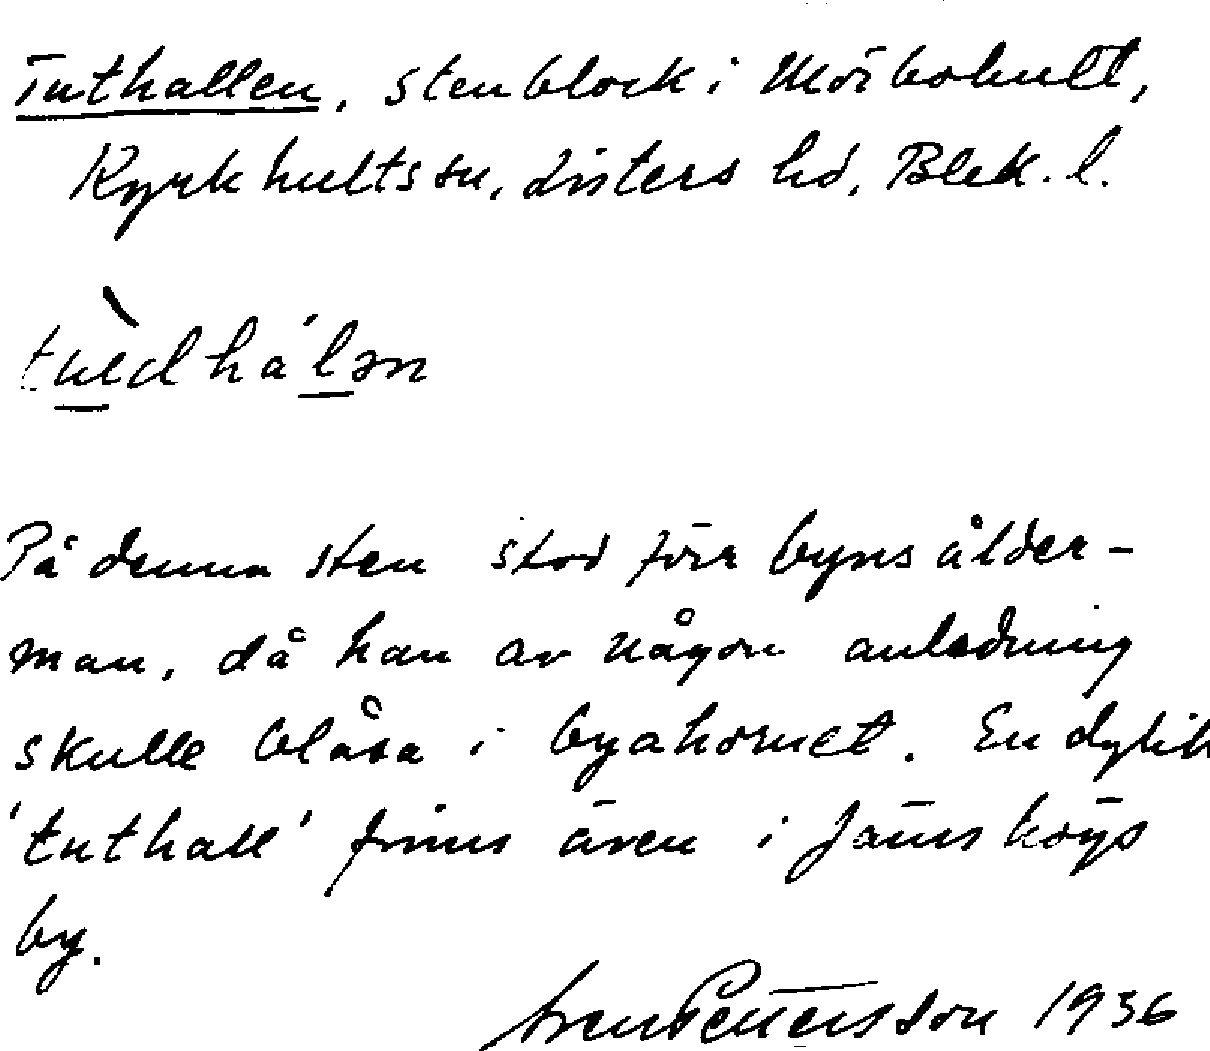 Tuthallen, stenblock i Mörbohult,
Kyrkhults sn, Listers hd, Blek. l.
På denna sten stod förr byns ålder-
man, då han av någon anledning
skulle blåsa i byahornet. En dylik
'tuthall' finns även i Jämshögs
by.
Sven Pettersson 1936